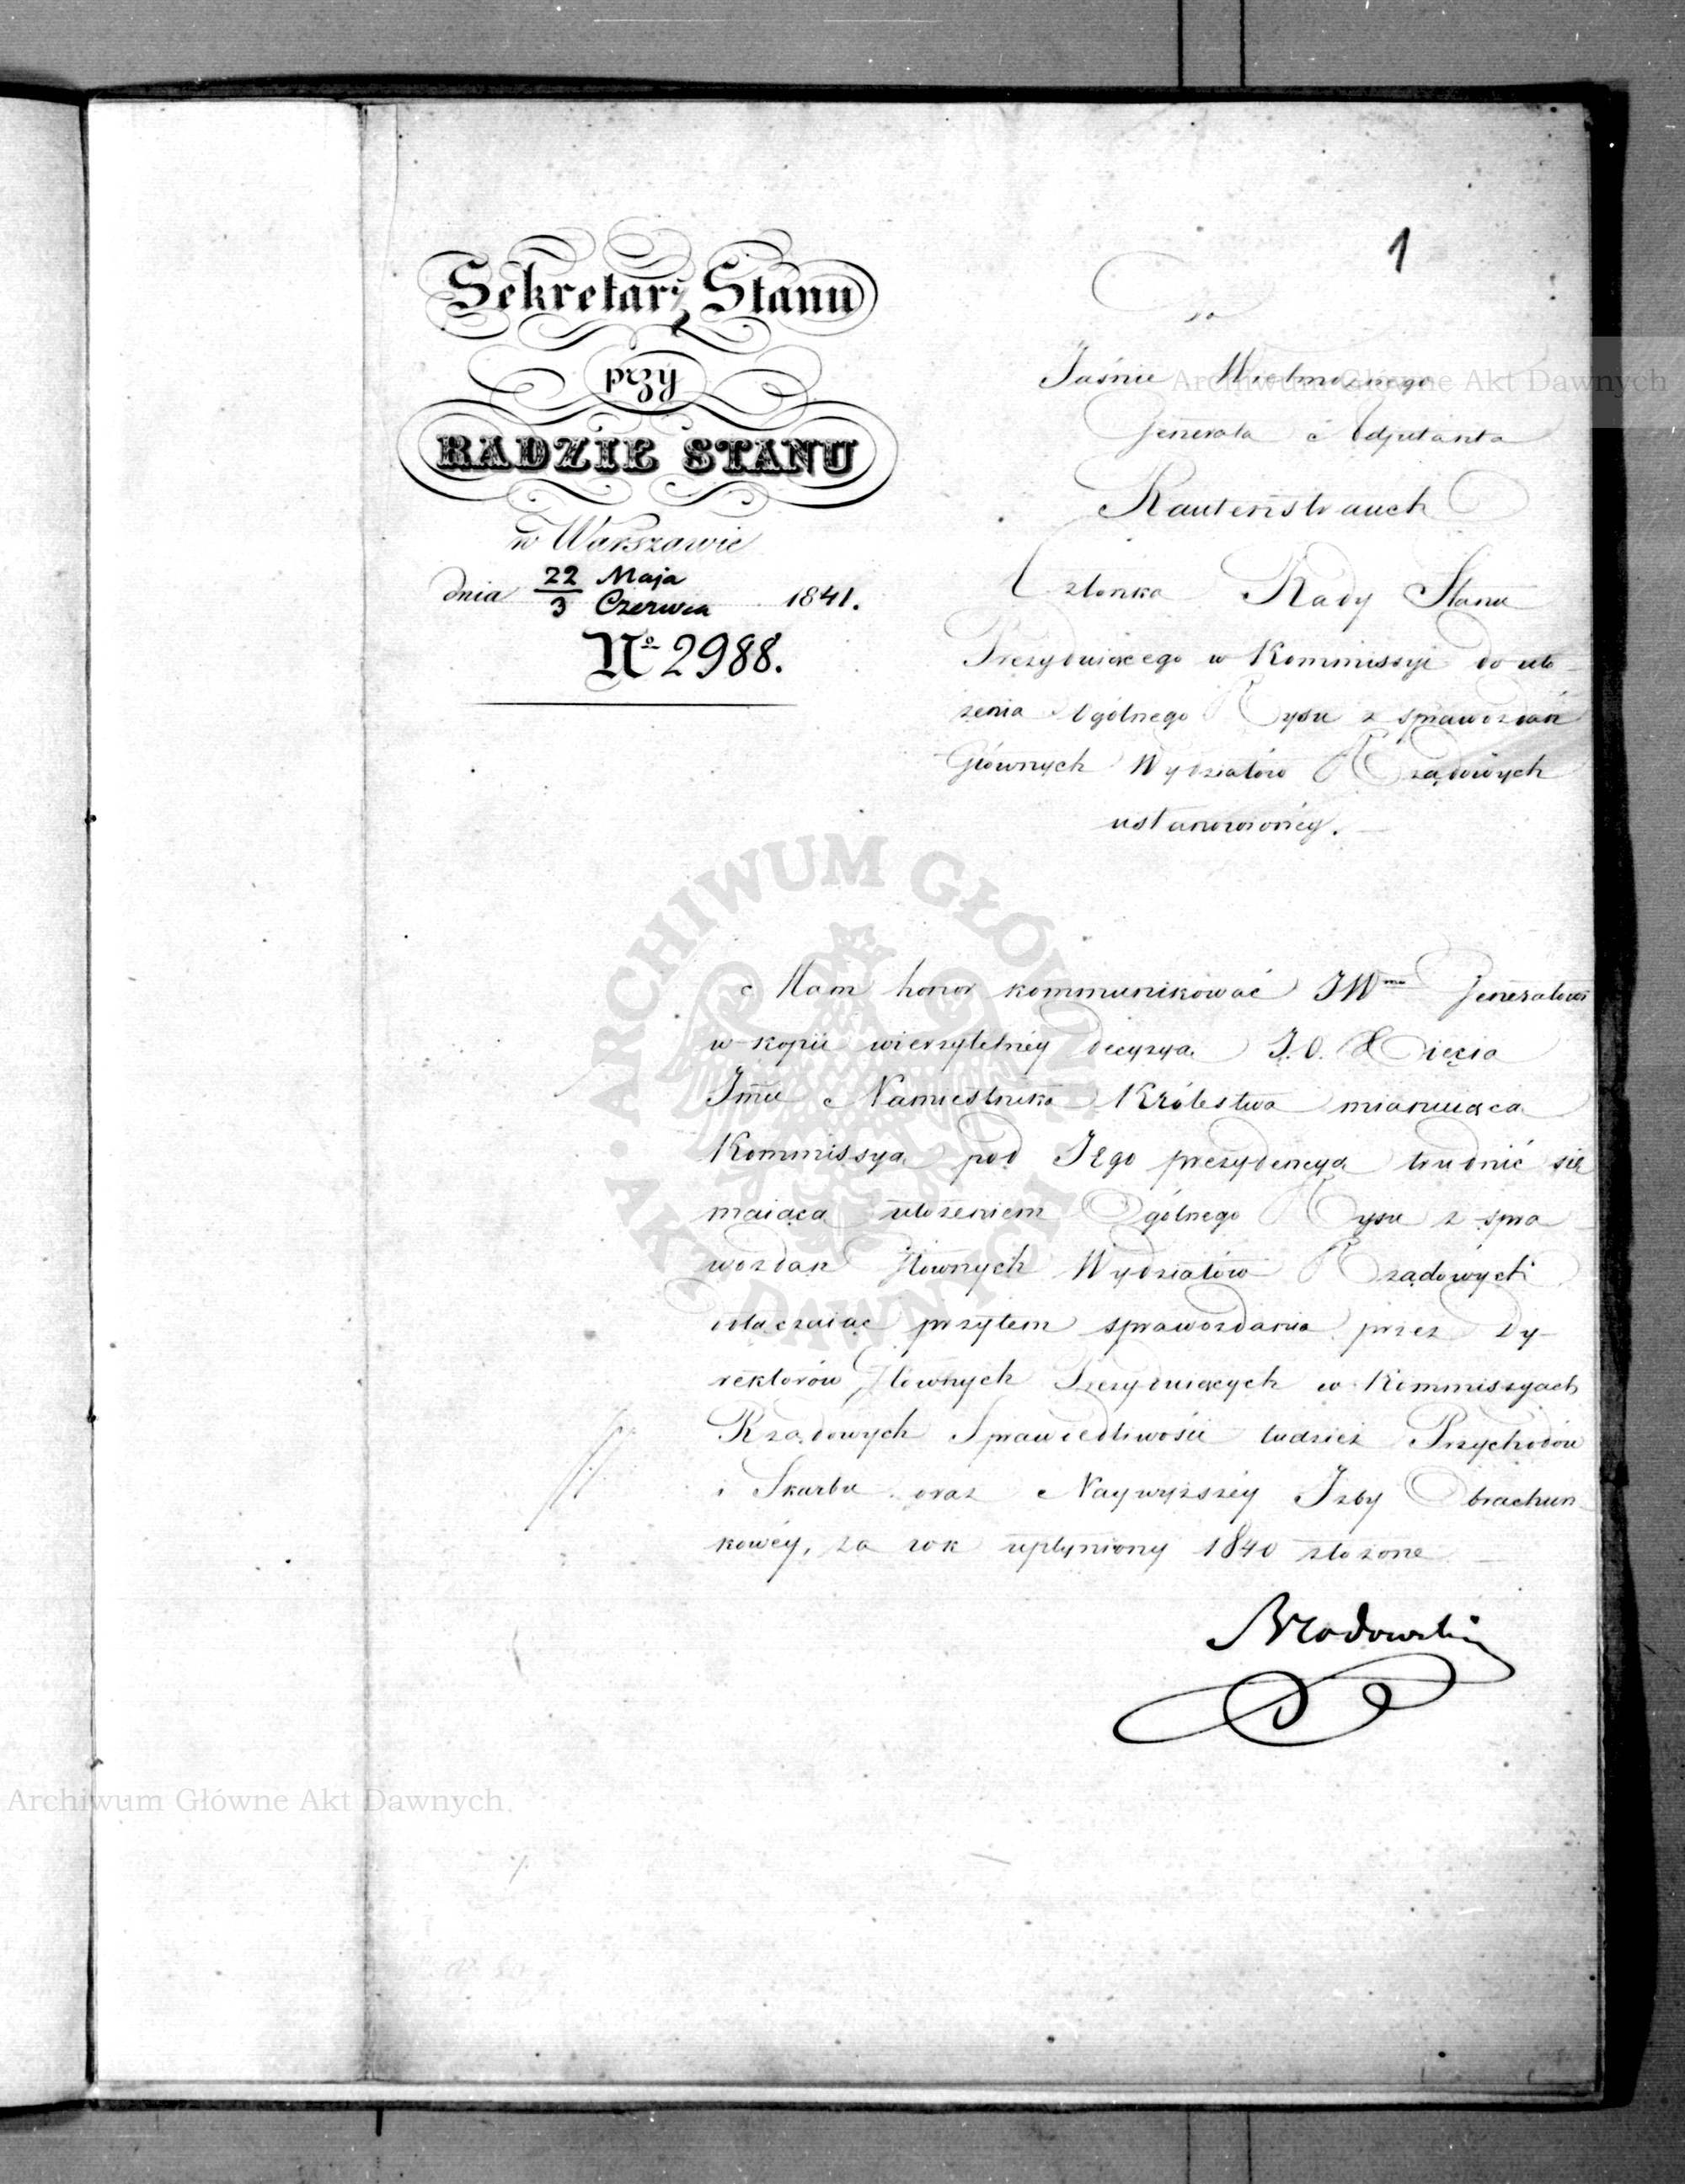 1
Sekretarz Stanu
przy
RADZIE STANU
w Warszawie
dnia 22/3 Maja/Czerwca 1841.
No 2988.
Do
Jaśnie Wielmożnego
Jenerała i Adjutanta
Rautenstrauch
Członka Rady Stanu
Prezyduiącego w Kommissyi do uło-
żenia Ogólnego Rysu z sprawozdań
Głównych Wydziałów Rządowych
ustanowionéy.
Mam honor kommunikować JWmu Jenerałowi
w kopii wierzytelnéy decyzyą J.O. Xięcia
Jmci Namiestnika Królestwa mianuiącą
Kommissyą pod Jego prezydencyą trudnić się
maiącą ułożeniem Ogólnego Rysu z spra
wozdań Głównych Wydziałów Rządowych
dołączaiąc przytem sprawozdania przez Dy-
rektorów Głównych Prezyduiących w Kommissyach
Rządowych Sprawiedliwości tudzież Przychodów
i Skarbu oraz Naywyższéy Izby Obrachun-
kowéy, za rok upłyniony 1840 złożone.
Brodowski
Archiwum Główne Akt Dawnych
ARCHIWUM GŁÓWNE · AKT DAWNYCH ·
Archiwum Główne Akt Dawnych